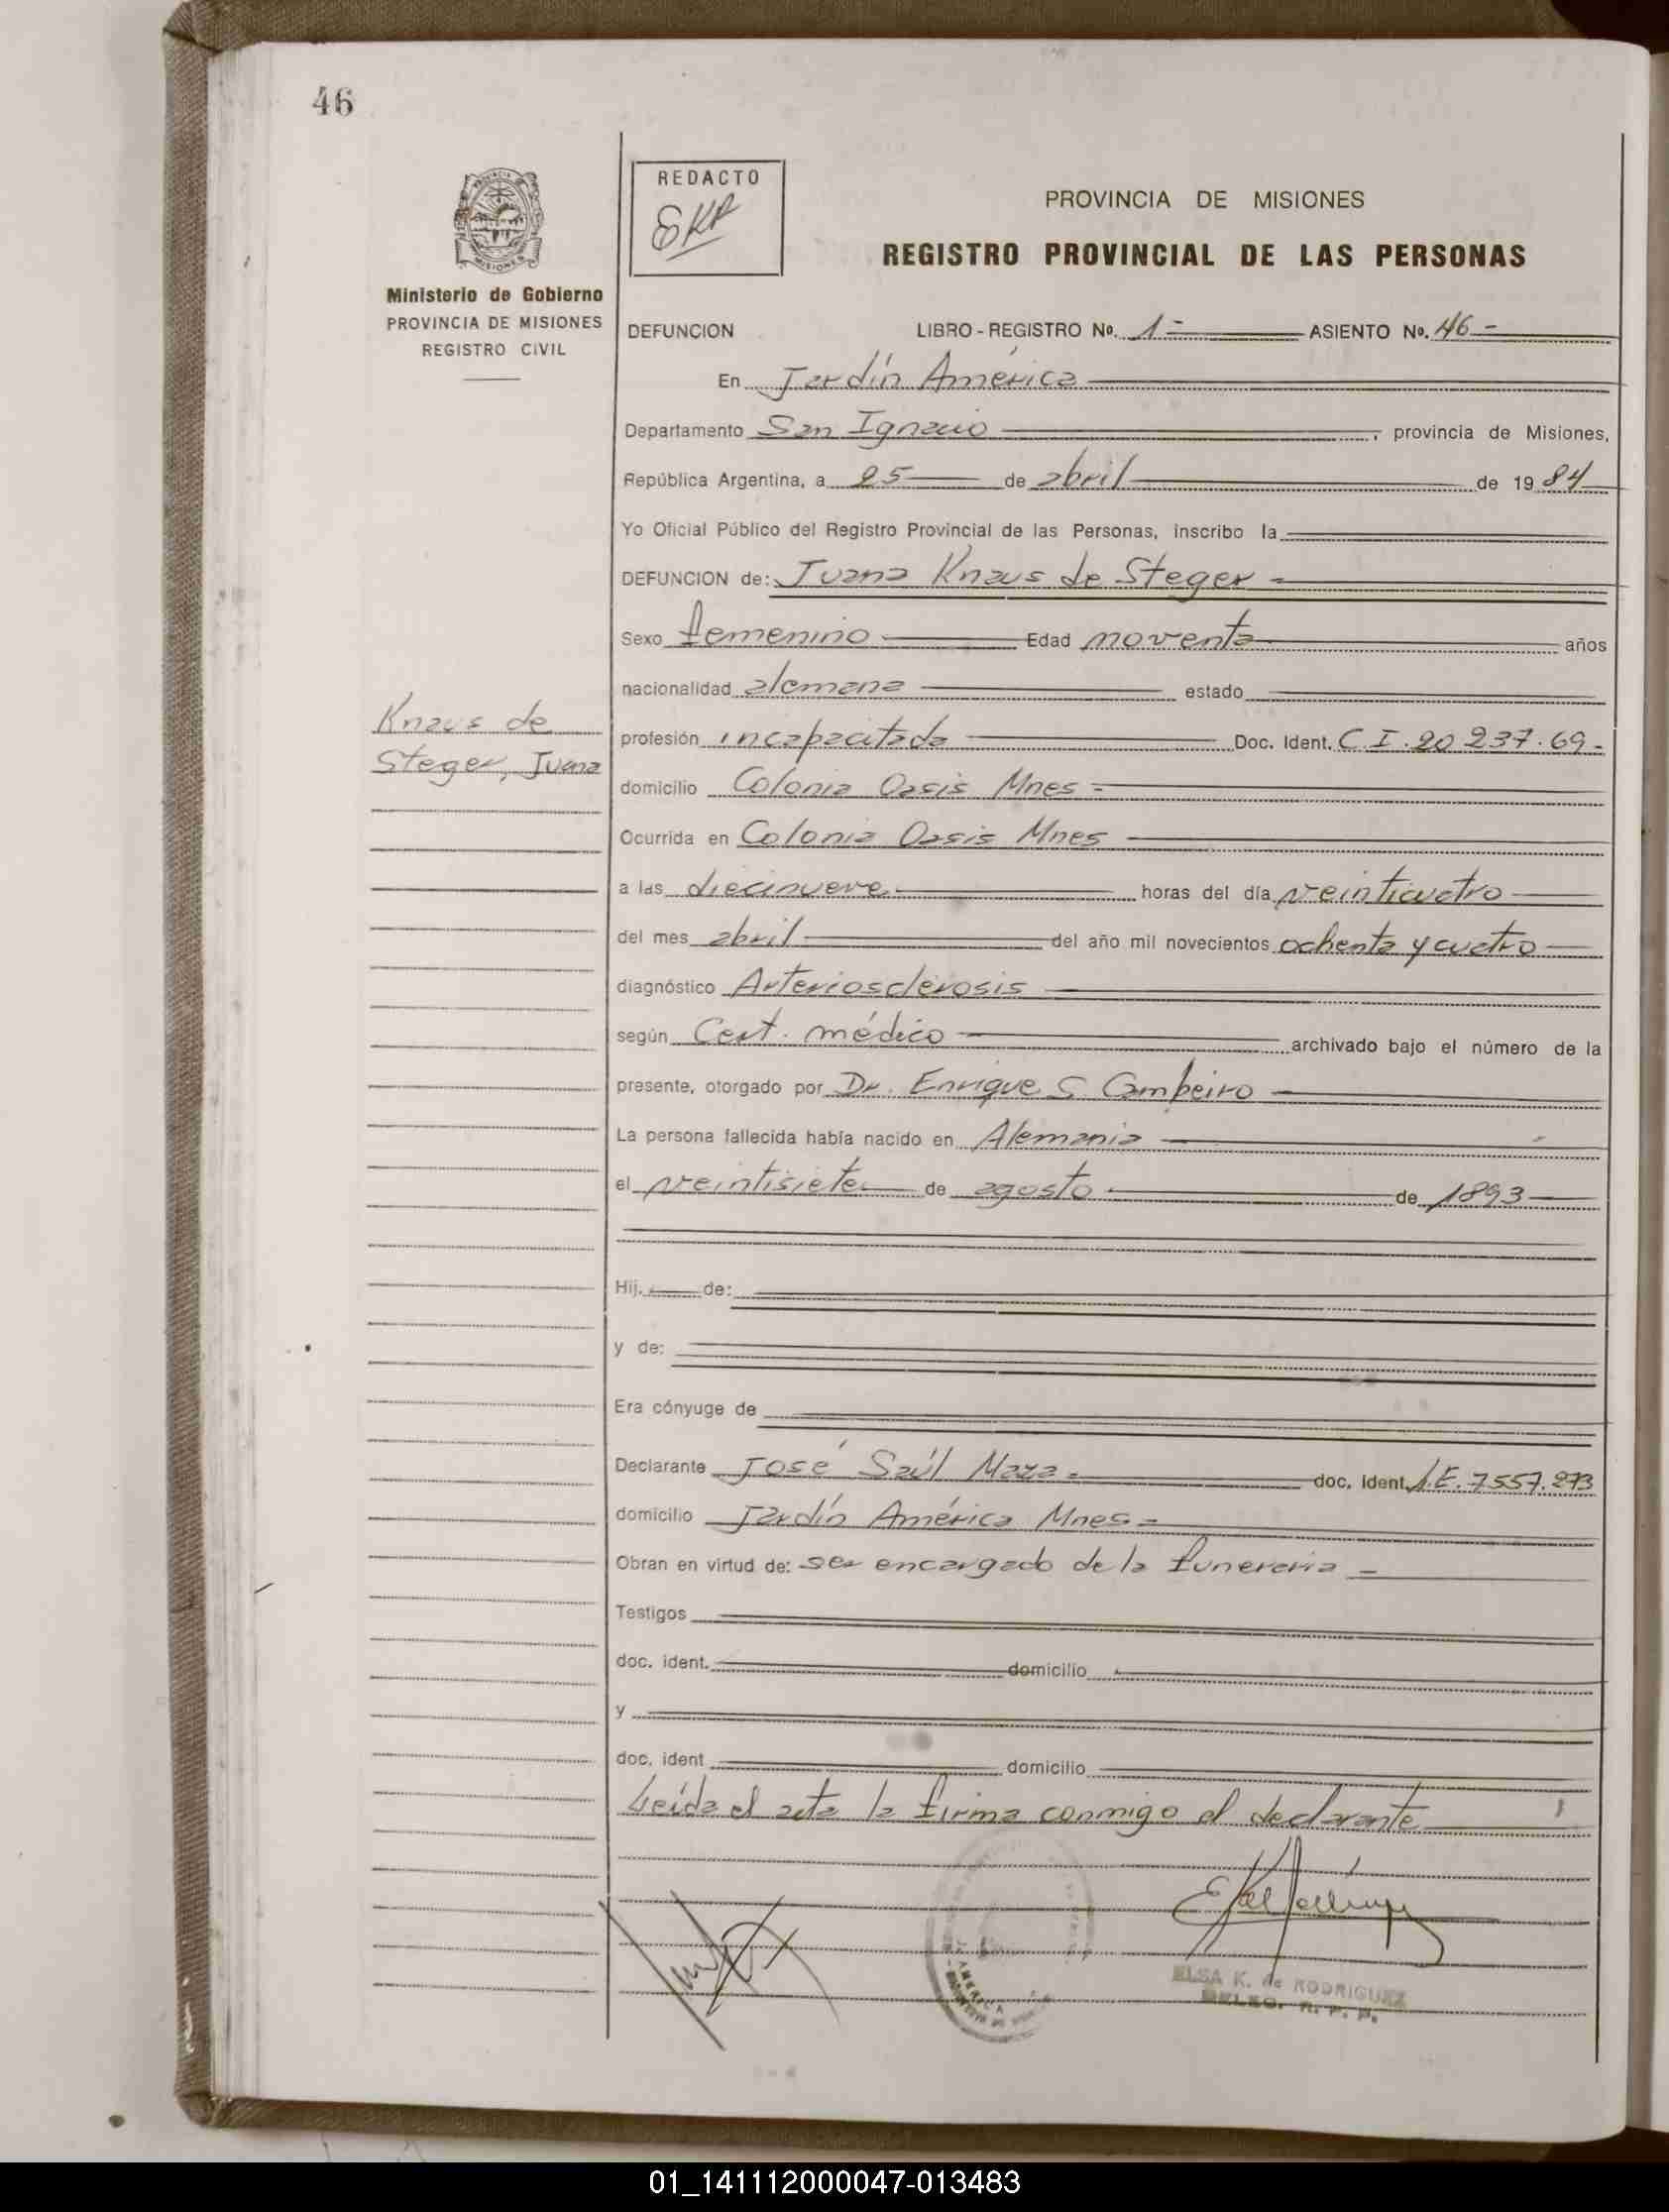 46
REDACTO
EKR
PROVINCIA DE MISIONES
REGISTRO PROVINCIAL DE LAS PERSONAS
Ministerio de Gobierno
PROVINCIA DE MISIONES
REGISTRO CIVIL
DEFUNCION LIBRO - REGISTRO Nº. 1 - ASIENTO Nº. 46 -
En Jardín América
Departamento San Ignacio, provincia de Misiones,
República Argentina, a 25 de abril de 19 84
Yo Oficial Público del Registro Provincial de las Personas, inscribo la
DEFUNCION de: Juana Knaus de Steger -
Sexo femenino Edad noventa años
nacionalidad alemana estado
Knaus de
Steger, Juana
profesión incapacitada Doc. Ident. C.I. 20 237.69 -
domicilio Colonia Oasis Mnes -
Ocurrida en Colonia Oasis Mnes
a las diecinueve horas del día veinticuatro
del mes abril del año mil novecientos ochenta y cuatro
diagnóstico Arteriosclerosis
según Cert. médico archivado bajo el número de la
presente, otorgado por Dr. Enrique S Cambeiro
La persona fallecida había nacido en Alemania
el veintisiete de agosto de 1893
Hij. de:
y de:
Era cónyuge de
Declarante José Saúl Maza - doc. Ident. L.E. 7557.273
domicilio Jardín América Mnes -
Obran en virtud de: ser encargado de la funeraria -
Testigos
doc. ident. domicilio
y
doc. ident domicilio
Leída el acta la firma conmigo el declarante
AMERICA
ELSA K. de RODRIGUEZ
DELEG. R. P. P.
01_141112000047-013483